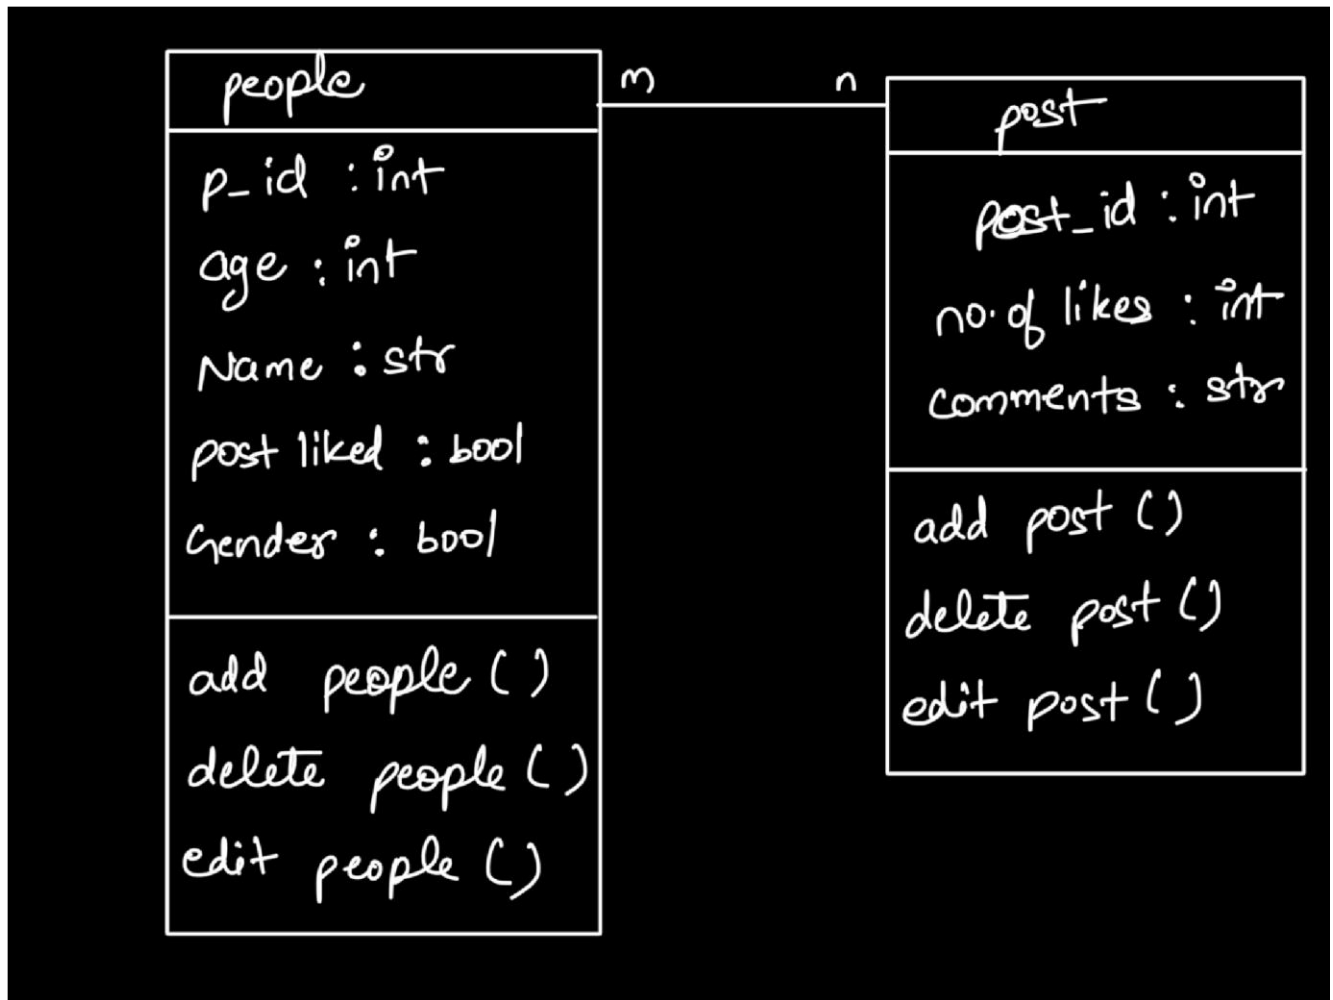 people
p_id : int
age : int
Name : str
post liked : bool
Gender : bool
add people ( )
delete people ( )
edit people ( )
m n
post
post_id : int
no. of likes : int
comments : str
add post ( )
delete post ( )
edit post ( )